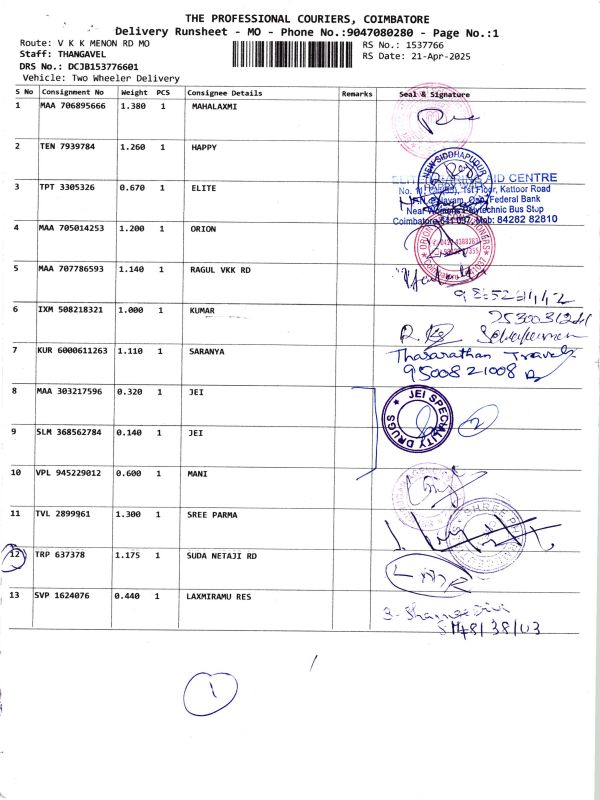 THE PROFESSIONAL COURIERS, COIMBATORE
Delivery Runsheet - MO - Phone No.:9047080280 - Page No.:1
Route: V K K MENON RD MO
RS No.: 1537766
Staff: THANGAVEL
RS Date: 21-Apr-2025
DRS No.: DCJB153776601
Vehicle: Two Wheeler Delivery
S No Consignment No Weight PCS Consignee Details Remarks Seal & Signature
1 MAA 706895666 1.380 1 MAHALAXMI
2 TEN 7939784 1.260 1 HAPPY
NEW SIDDHAPUDUR
3 TPT 3305326 0.670 1 ELITE
AID CENTRE
1st Floor, Kattoor Road
Federal Bank
Polytechnic Bus Stop
Coimbatore Mob: 84282 82810
4 MAA 705014253 1.200 1 ORION
ORION
5 MAA 707786593 1.140 1 RAGUL VKK RD
6 IXM 508218321 1.000 1 KUMAR
7 KUR 6000611263 1.110 1 SARANYA
Thasarathan Travels
95008 21008
8 MAA 303217596 0.320 1 JEI
JEI SPECIALITY DRUGS
2
9 SLM 368562784 0.140 1 JEI
10 VPL 945229012 0.600 1 MANI
11 TVL 2899961 1.300 1 SREE PARMA
12 TRP 637378 1.175 1 SUDA NETAJI RD
13 SVP 1624076 0.440 1 LAXMIRAMU RES
1